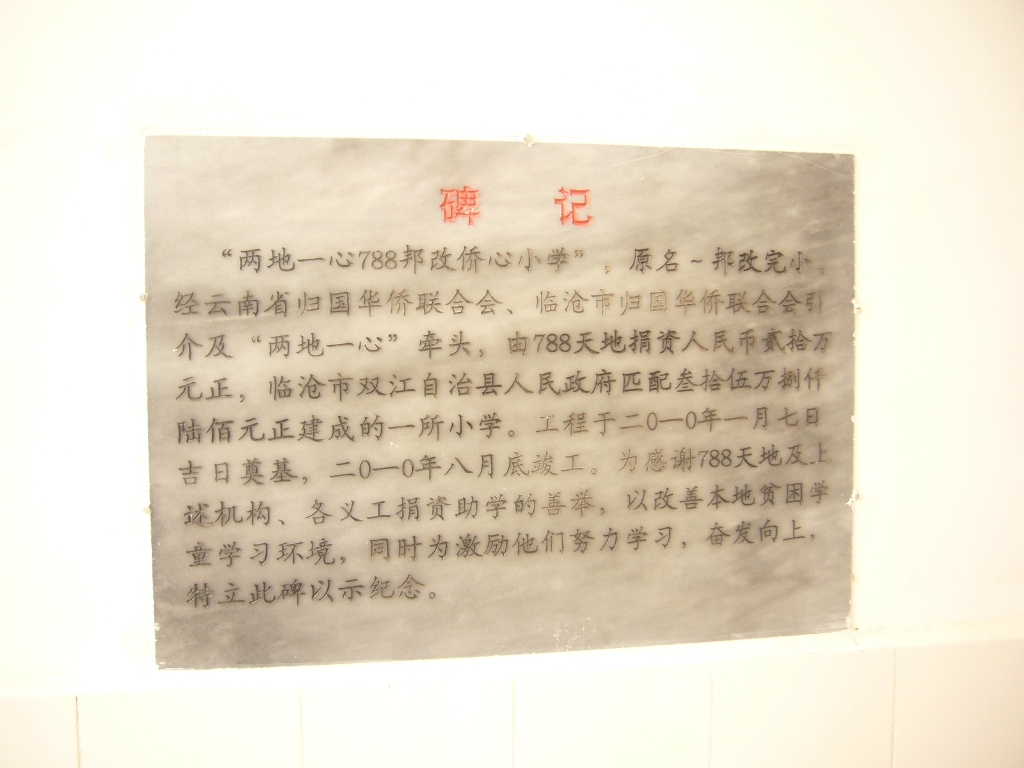 碑 记
“两地一心788邦改侨心小学”，原名~邦改完小，
经云南省归国华侨联合会、临沧市归国华侨联合会引
介及“两地一心”牵头，由788天地捐资人民币贰拾万
元正，临沧市双江自治县人民政府匹配叁拾伍万捌仟
陆佰元正建成的一所小学。工程于二0一0年一月七日
吉日奠基，二0一0年八月底竣工。为感谢788天地及上
述机构、各义工捐资助学的善举，以改善本地贫困学
童学习环境，同时为激励他们努力学习，奋发向上，
特立此碑以示纪念。